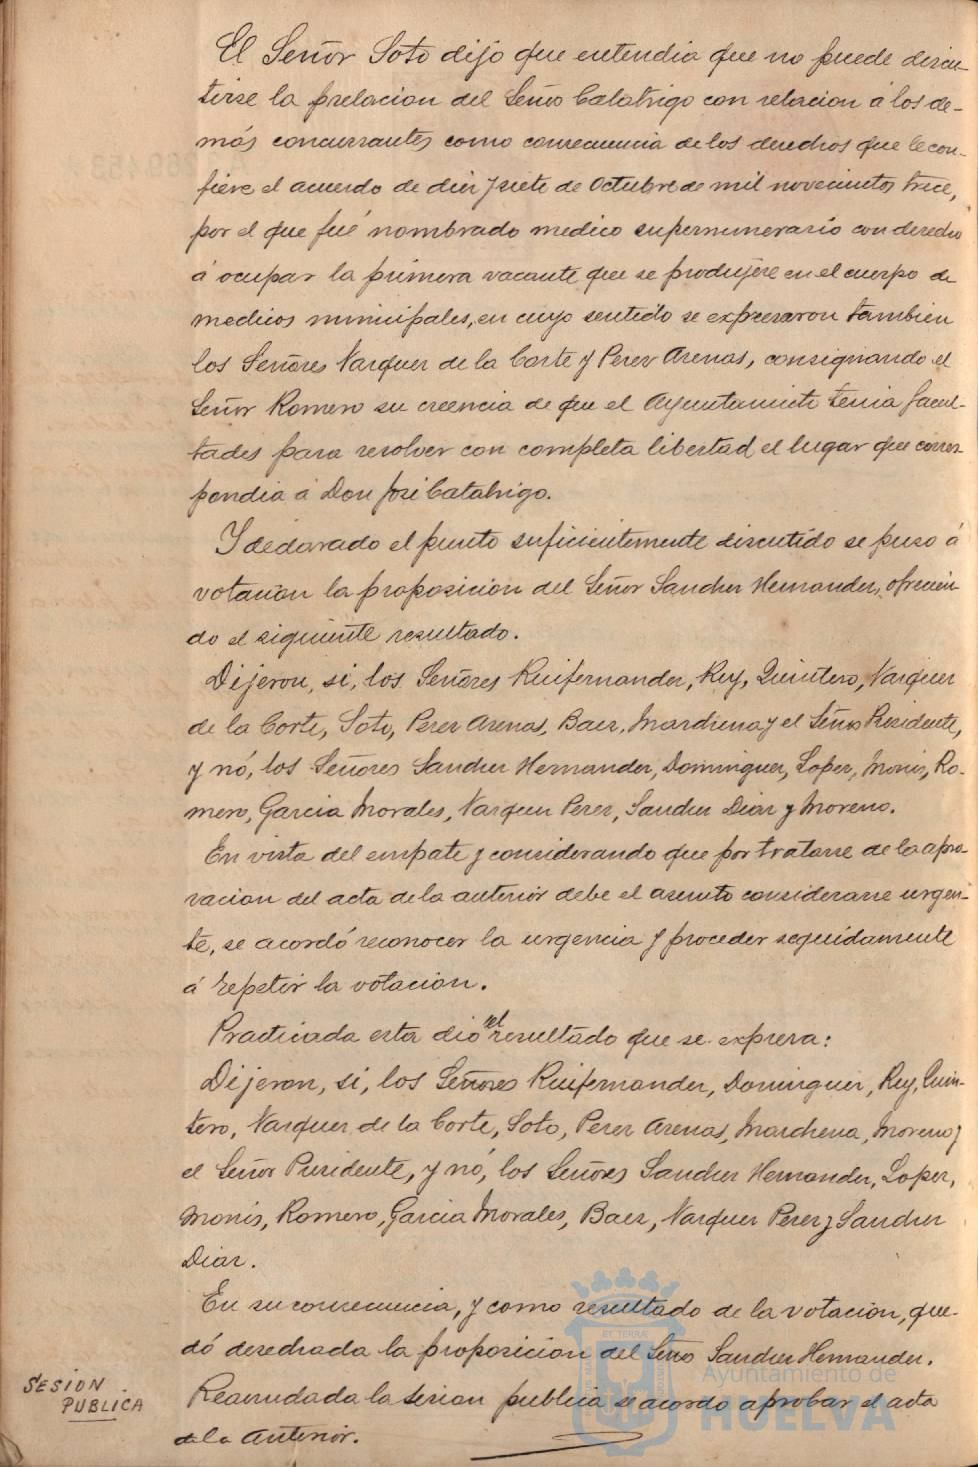 El Señor Soto dijo que entendia que no puede discu-
tirse la prelacion del Señor Calatrigo con relacion á los de-
más concurrantes como consecuencia de los derechos que le con-
fiere el acuerdo de diez y siete de Octubre de mil novecientos trece,
por el que fué nombrado medico supernumerario con derecho
á ocupar la primera vacante que se produjere en el cuerpo de
medicos municipales, en cuyo sentido se expresaron tambien
los Señores Vazquez de la Corte y Perez Arenas, consignando el
Señor Romero su creencia de que el Ayuntamiento tenia facul-
tades para resolver con completa libertad el lugar que corres-
pondia á Don José Calatrigo.
Y declarado el punto suficientemente discutido se puso á
votacion la proposicion del Señor Sanchez Hernandez, ofrecien-
do el siguiente resultado.
Dijeron, si, los Señores Ruifernandez, Rey, Quintero, Vazquez
de la Corte, Soto, Perez Arenas, Baez, Marchena y el Señor Presidente,
y nó, los Señores Sanchez Hernandez, Dominguez, Lopez, Monis, Ro-
mero, Garcia Morales, Vazquez Perez, Sanchez Diaz y Moreno.
En vista del empate y considerando que por tratarse de la apro-
vacion del acta de la anterior debe el asunto considerarse urgen-
te, se acordó reconocer la urgencia y proceder seguidamente
á repetir la votacion.
Practicada esta dió el resultado que se expresa:
Dijeron, si, los Señores Ruifernandez, Dominguez, Rey, Quin-
tero, Vazquez de la Corte, Soto, Perez Arenas, Marchena, Moreno y
el Señor Presidente, y nó, los Señores Sanchez Hernandez, Lopez,
Monis, Romero, Garcia Morales, Baez, Vazquez Perez y Sanchez
Diaz.
En su consecuencia, y como resultado de la votacion, que-
dó desechada la proposicion del Señor Sanchez Hernandez.
SESION
PUBLICA
Reanudada la sesion publica se acordo aprobar el acta
de la anterior.
Ayuntamiento de
HUELVA